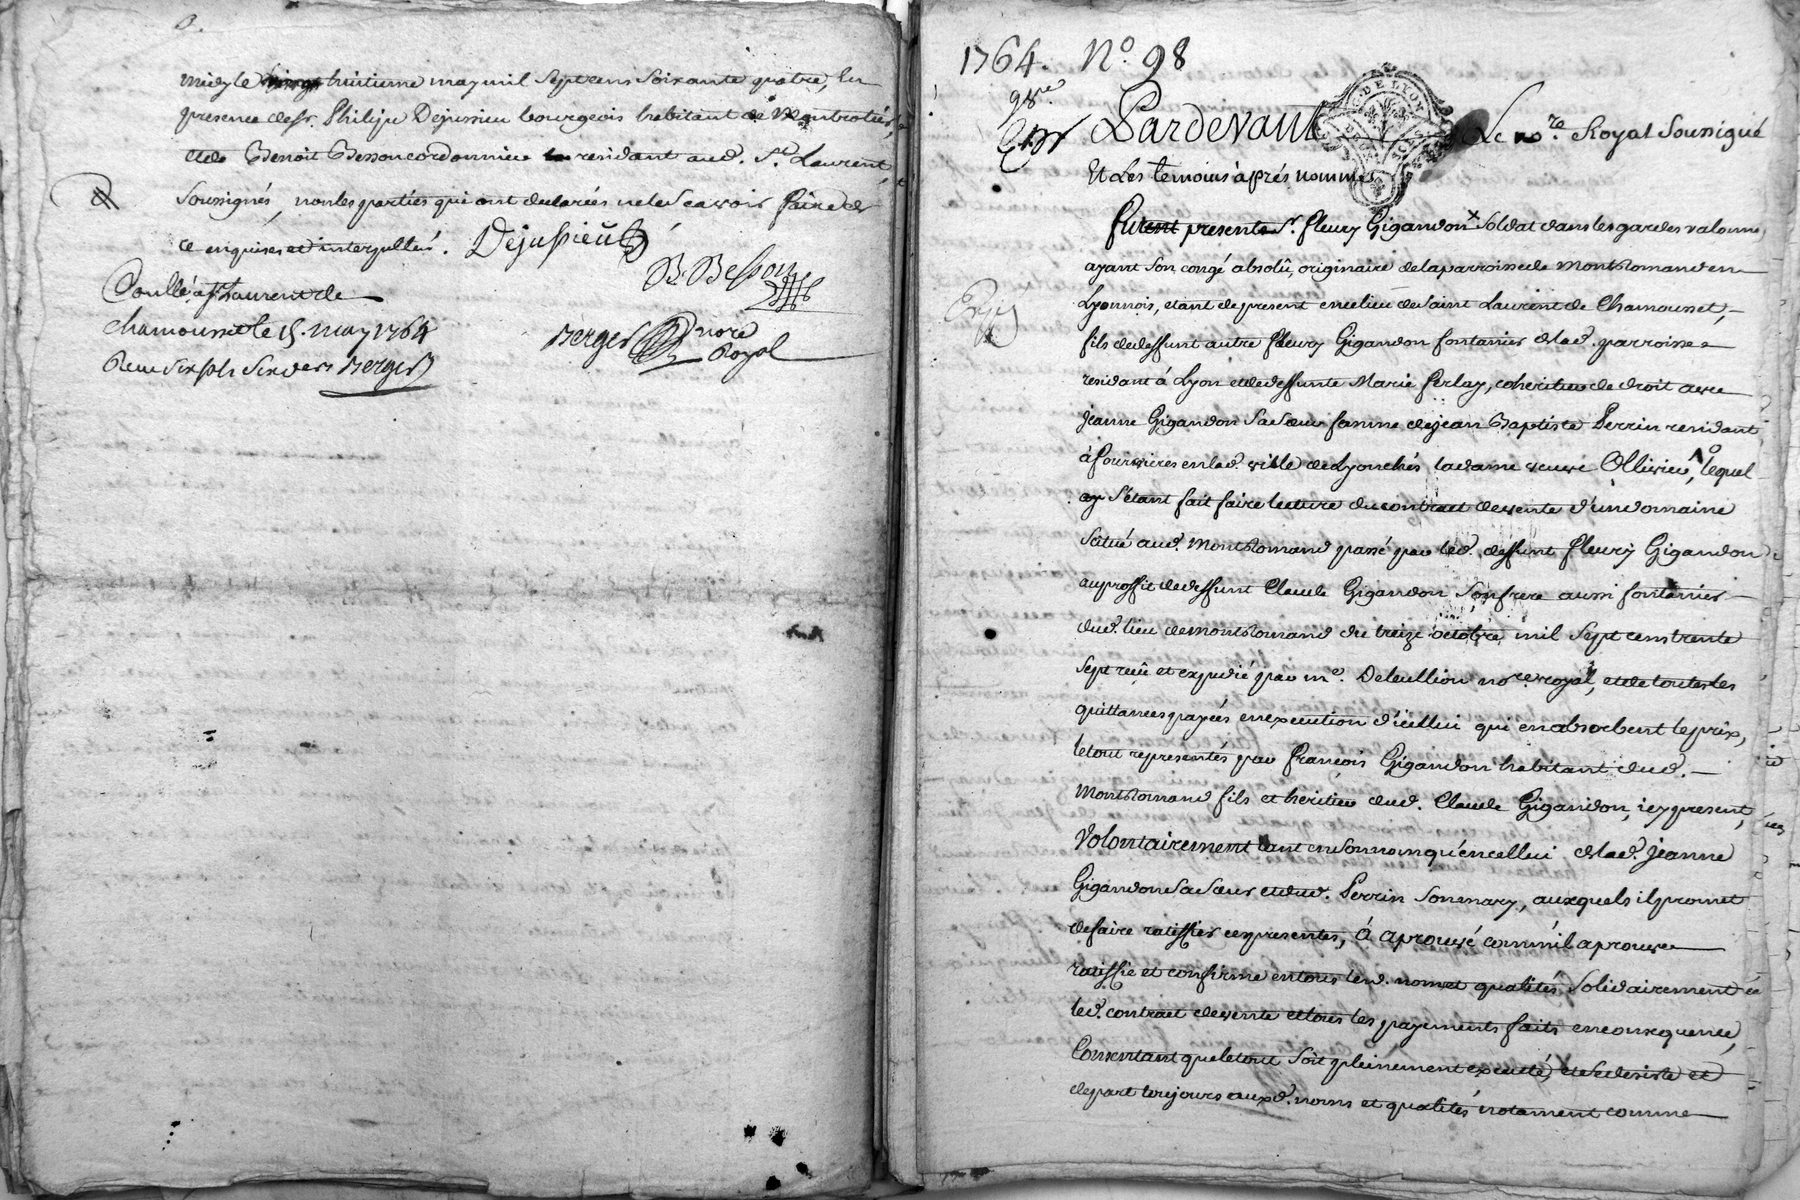 midy le huitieme may mil sept cens soixante quatre, En
presence de sr. Philipe Dejussieu bourgeois habitant de Montrotier,
et de Benoit Besson cordonnier residant aud. St. Laurent,
soussignés, non les parties qui ont declarées ne le scavoir faire de
ce enquises et interpellés. Dejussieu
B. Besson
Conllé a St Laurent de
Chamousset le 15. may 1764
Berger nore
Royal
Reçu six sols six ders Berger
1764. N° 98
98e.
Pardevant Le nore. Royal Soussigné
G. DE LYON
Et Les temoins après nommés
Furent presents Sr. fleury Gigandon x soldat dans les gardes valonnes
ayant son congé absolû, originaire de la parroisse de Montromand en
Lyonnois, etant de present en ce lieu de Saint Laurent de Chamousset,
Exp
fils de deffunt autre fleury Gigandon fontanier de lad. parroisse
residant à Lyon et de deffunte Marie ferlay, coheritier de droit avec
jeanne Gigandon sa sœur femme de jean Baptiste Perrin residant
à fourvieres en lad. ville de Lyon chés la dame veuve Ollivier, lequel
s'étant fait faire lecture du contract de vente d'un domaine
scitué aud. Montromand passé par led. deffunt fleury Gigandon
au proffit de deffunt Claude Gigandon son frere aussi fontanier
dud. lieu de montromand du treize octobre mil sept cens trente
sept reçû et expedié par me. Deleullion nore. royal, et de toutes les
quittances payées en execution d'icellui qui en absorbent le prix,
le tout representés par françois Gigandon habitant dud.
Montromand fils et heritier dud. Claude Gigandon, icy present,
Volontairement tant en son nom qu'en cellui de lad. jeanne
Gigandon sa sœur et dud. Perrin son mary, auxquels il promet
de faire ratiffier ces presentes, à aprouvé comm'il aprouve
ratiffie et confirme en tous lesd. noms et qualités solidairement
led. contract de vente et tous les payements faits en consequence,
Consentant que le tout soit pleinement executé, et se desiste et
depart toujours auxd. noms et qualités notament comme